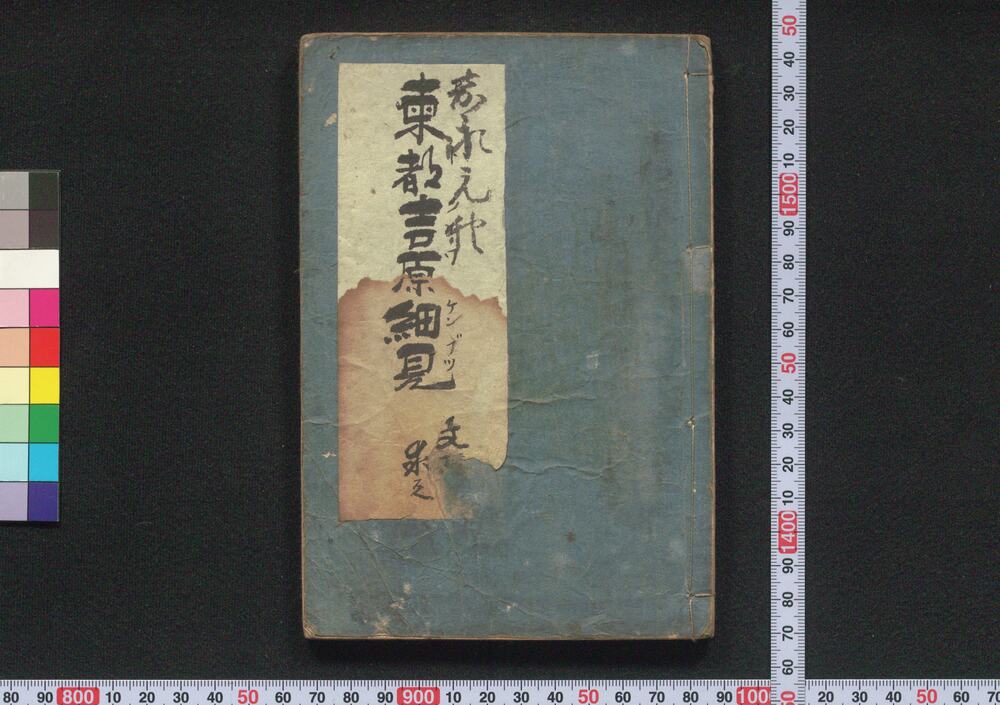 嘉永元
東都吉原細見
ケン
文
求之
50
40
30
20
10
1500
90
80
70
60
50
40
30
20
10
1400
90
80
70
60
50
80 90 800 10 20 30 40 50 60 70 80 90 900 10 20 30 40 50 60 70 80 90 100 20 30 40 50 60 70